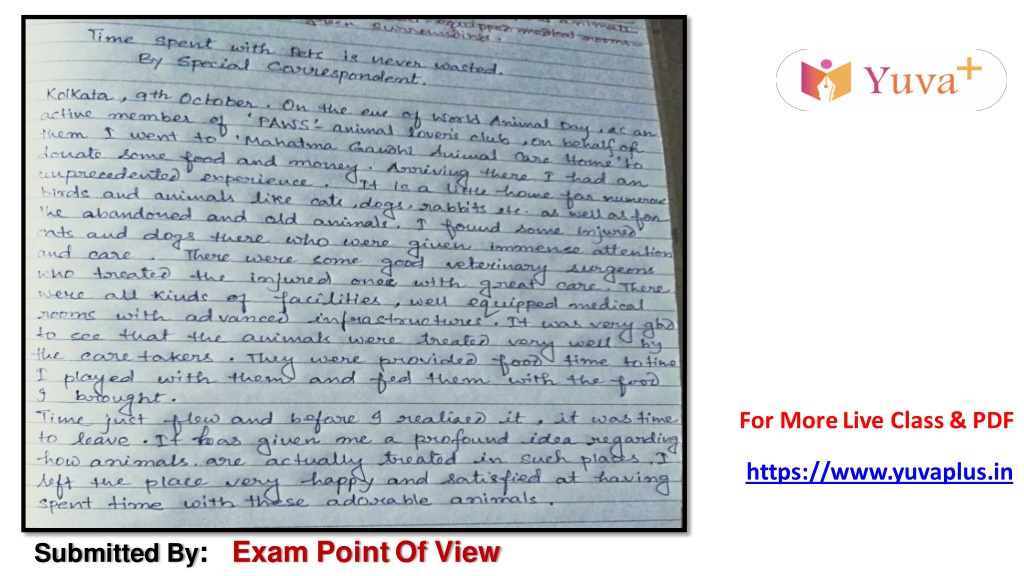 equipped medical rooms
surroundings.
Time spent with Pets is never wasted.
By Special Carrespondent.
Kolkata, 9th October. On the eve of World Animal Day, as an
active member of 'PAWS'- animal lover's club, on behalf of
them I went to 'Mahatma Gandhi Animal Care Home' to
donate some food and money. Arriving there I had an
unprecedented experience. It is a little home for numerous
birds and animals like cats, dogs, rabbits etc. as well as for
the abandoned and old animals. I found some injured
cats and dogs there who were given immense attention
and care. There were some good veterinary surgeons
who treated the injured ones with great care. There
were all kinds of facilities, well equipped medical
rooms with advanced infrastructures. It was very glad
to see that the animals were treated very well by
the care takers. They were provided food time to time
I played with them and fed them with the food
I brought.
Time just flew and before I realised it, it was time
to leave. It has given me a profound idea regarding
how animals are actually treated in such places. I
left the place very happy and satisfied at having
spent time with these adorable animals.
Yuva+
For More Live Class & PDF
https://www.yuvaplus.in
Submitted By: Exam Point Of View